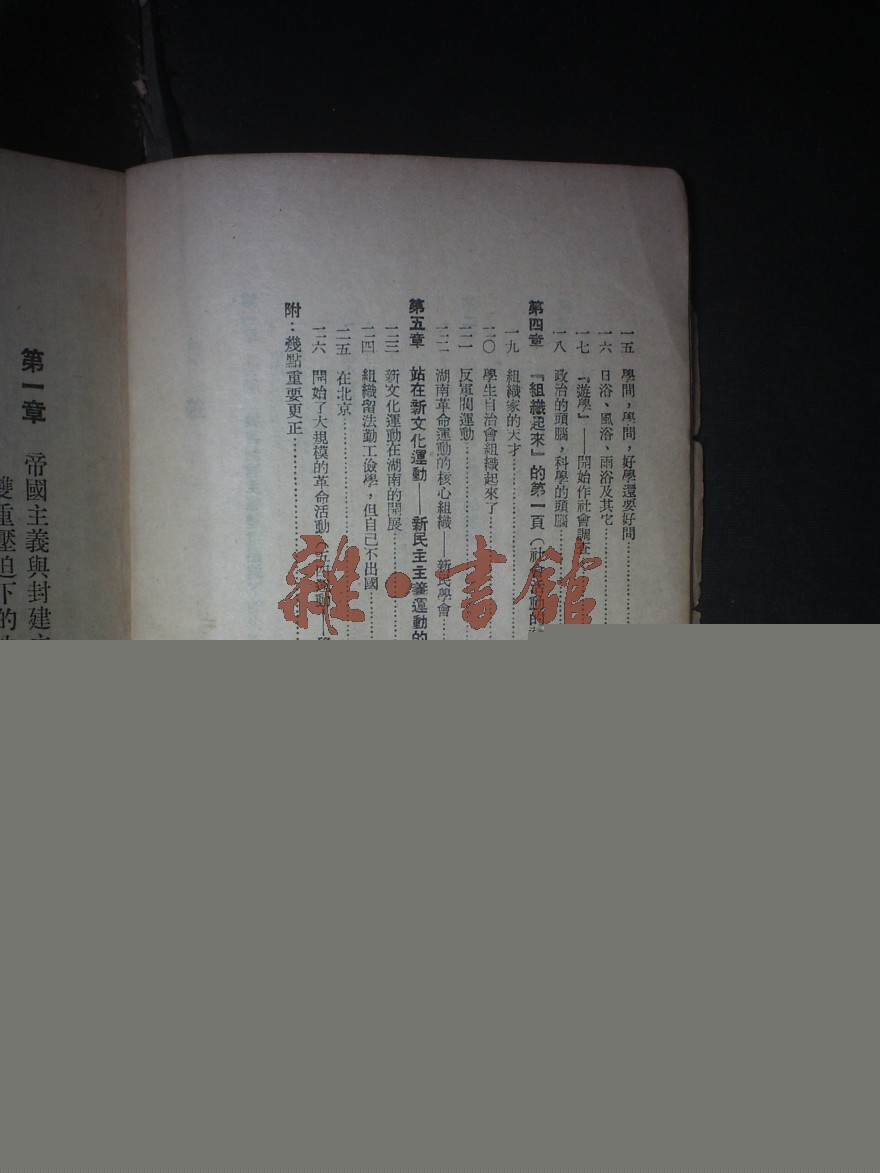 一五 學問，學問，好學還要好問
一六 日浴、風浴、雨浴及其它
一七 『遊學』——開始作社會調查
一八 政治的頭腦，科學的頭腦
第四章 『組織起來』的第一頁（社會活動的
一九 組織家的天才
二〇 學生自治會組織起來了
二一 反軍閥運動
二二 湖南革命運動的核心組織——新民學會
第五章 站在新文化運動——新民主主義運動的
二三 新文化運動在湖南的開展
二四 組織留法勤工儉學，但自己不出國
二五 在北京
二六 開始了大規模的革命活動（五四運動
附：幾點重要更正
第一章 帝國主義與封建
雙重壓迫下的
雜·書館